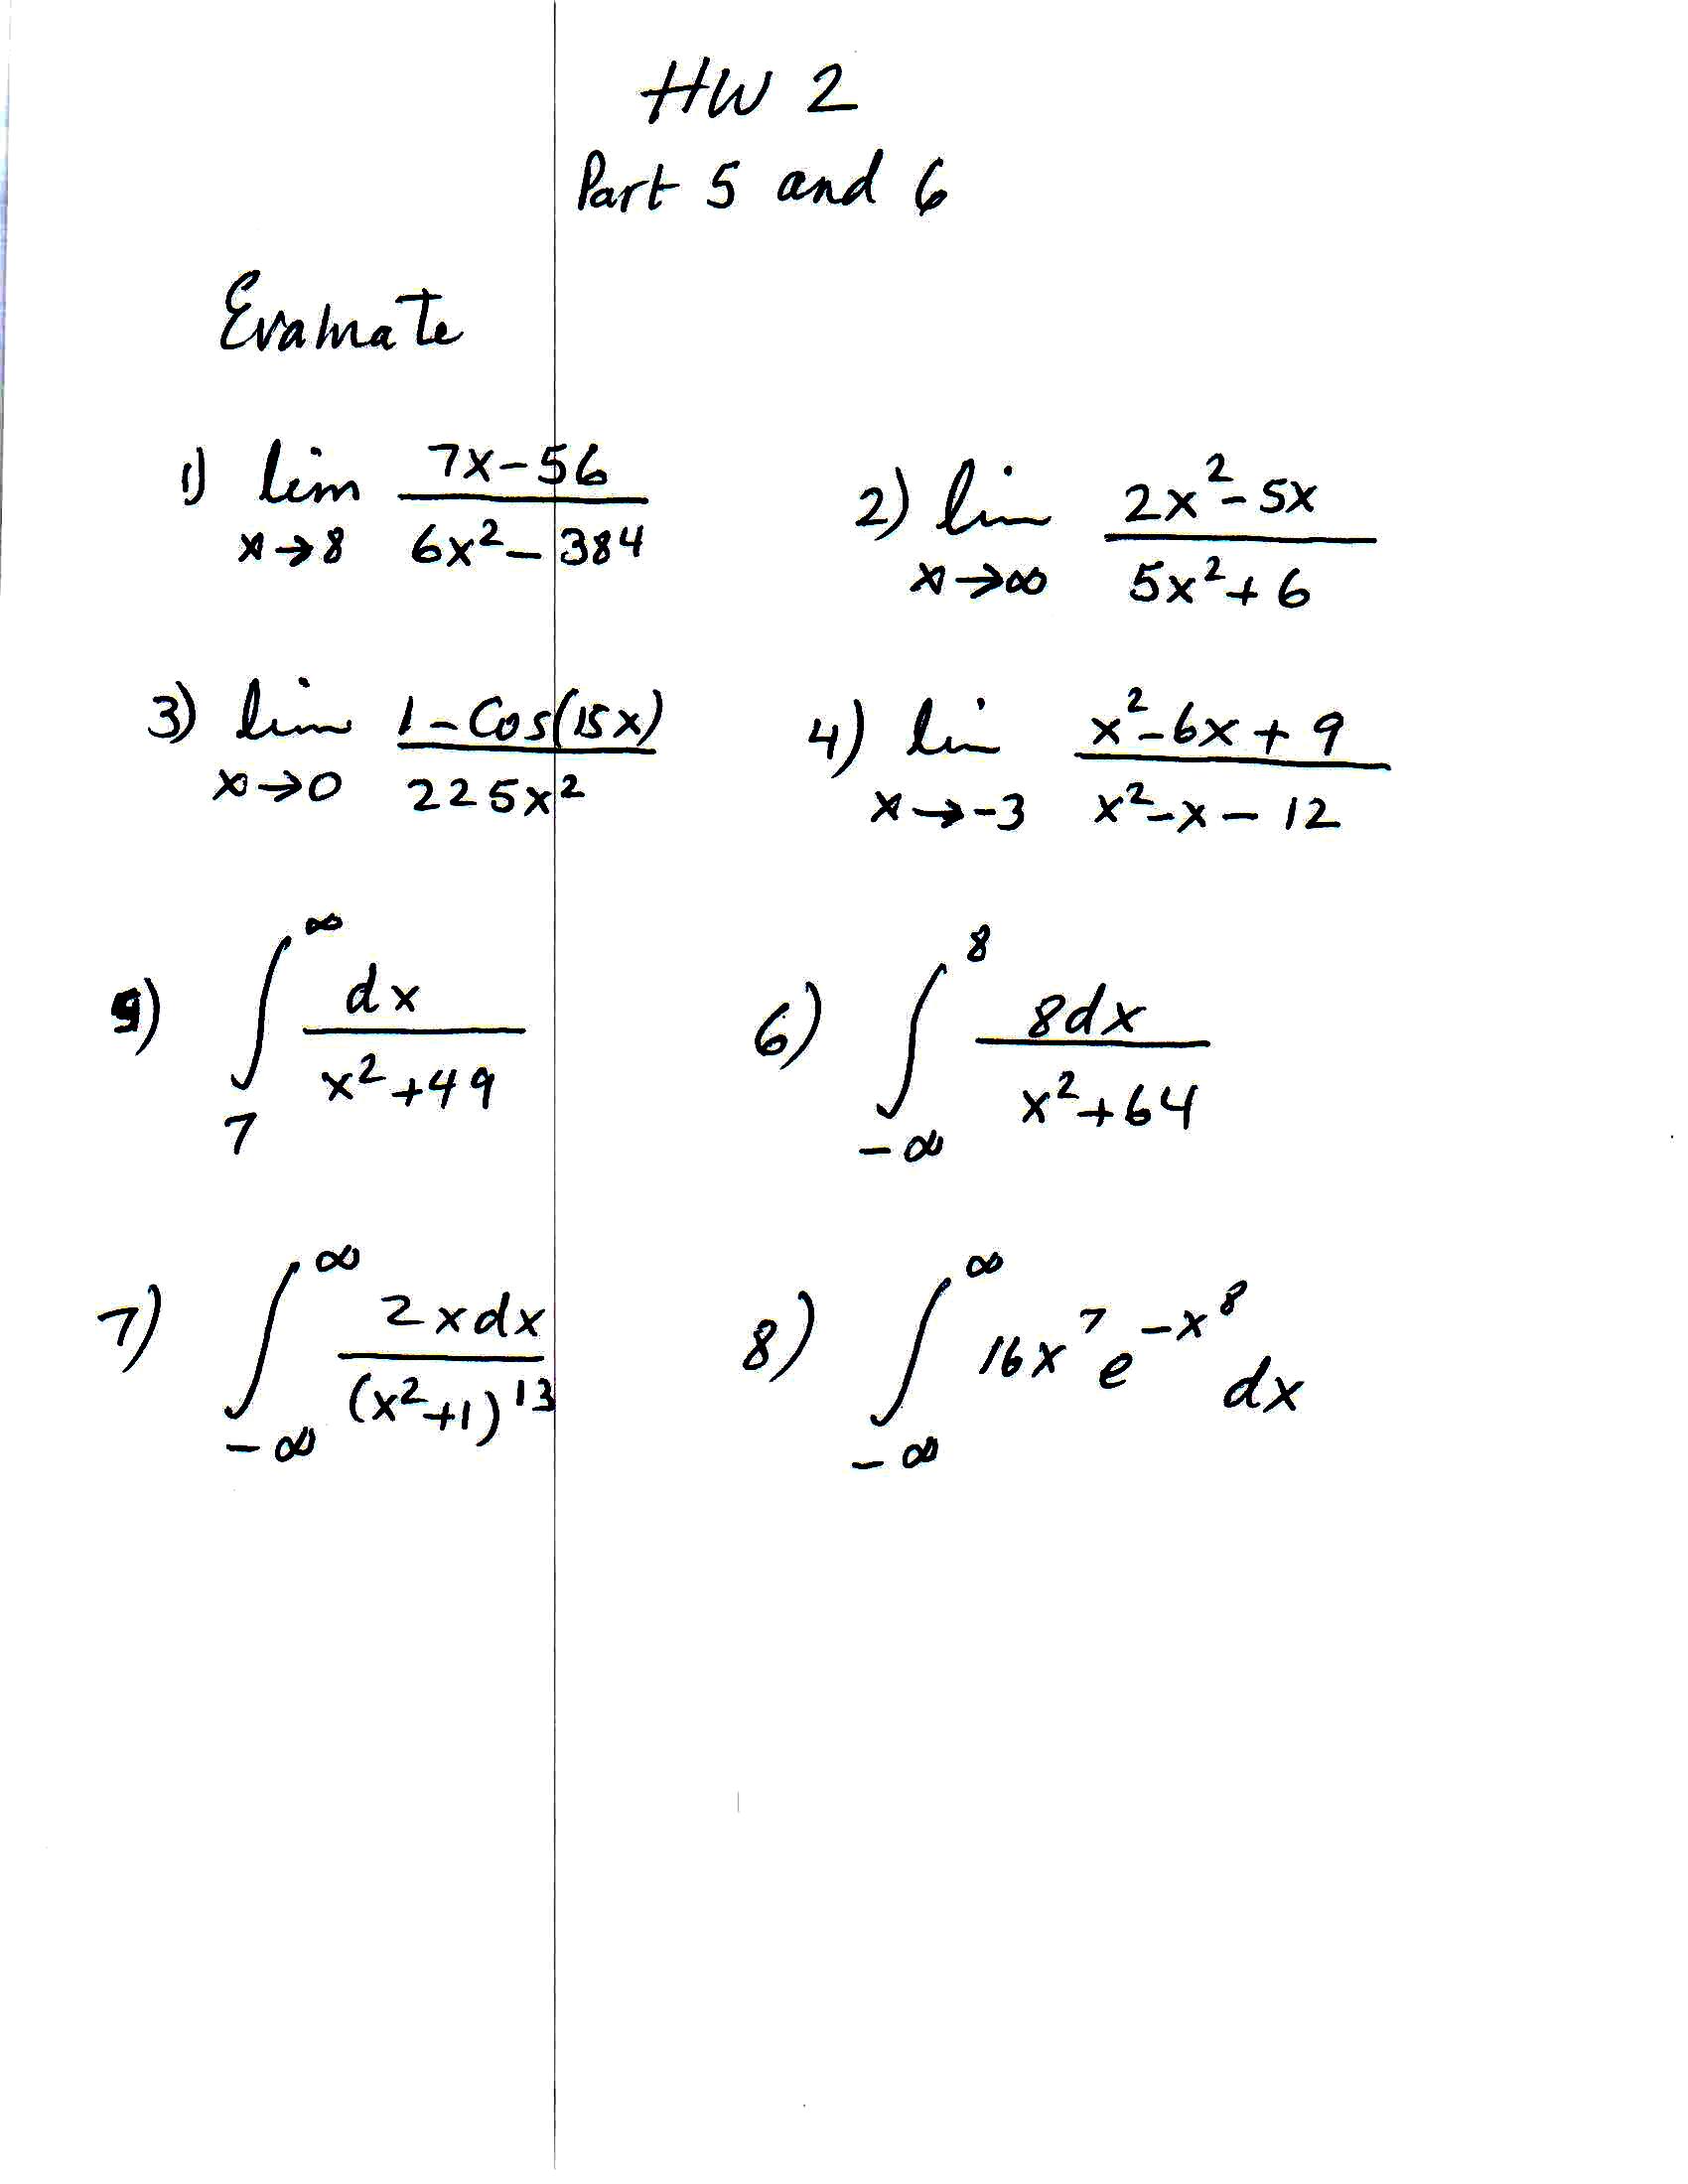 HW 2
Part 5 and 6
Evaluate
1) lim x→8 (7x-56)/(6x²-384)
2) lim x→∞ (2x²-5x)/(5x²+6)
3) lim x→0 (1-Cos(15x))/(225x²)
4) lim x→-3 (x²-6x+9)/(x²-x-12)
5) ∫₇^∞ dx/(x²+49)
6) ∫_{-∞}^8 8dx/(x²+64)
7) ∫_{-∞}^∞ 2xdx/(x²+1)¹³
8) ∫_{-∞}^∞ 16x⁷e^{-x⁸} dx